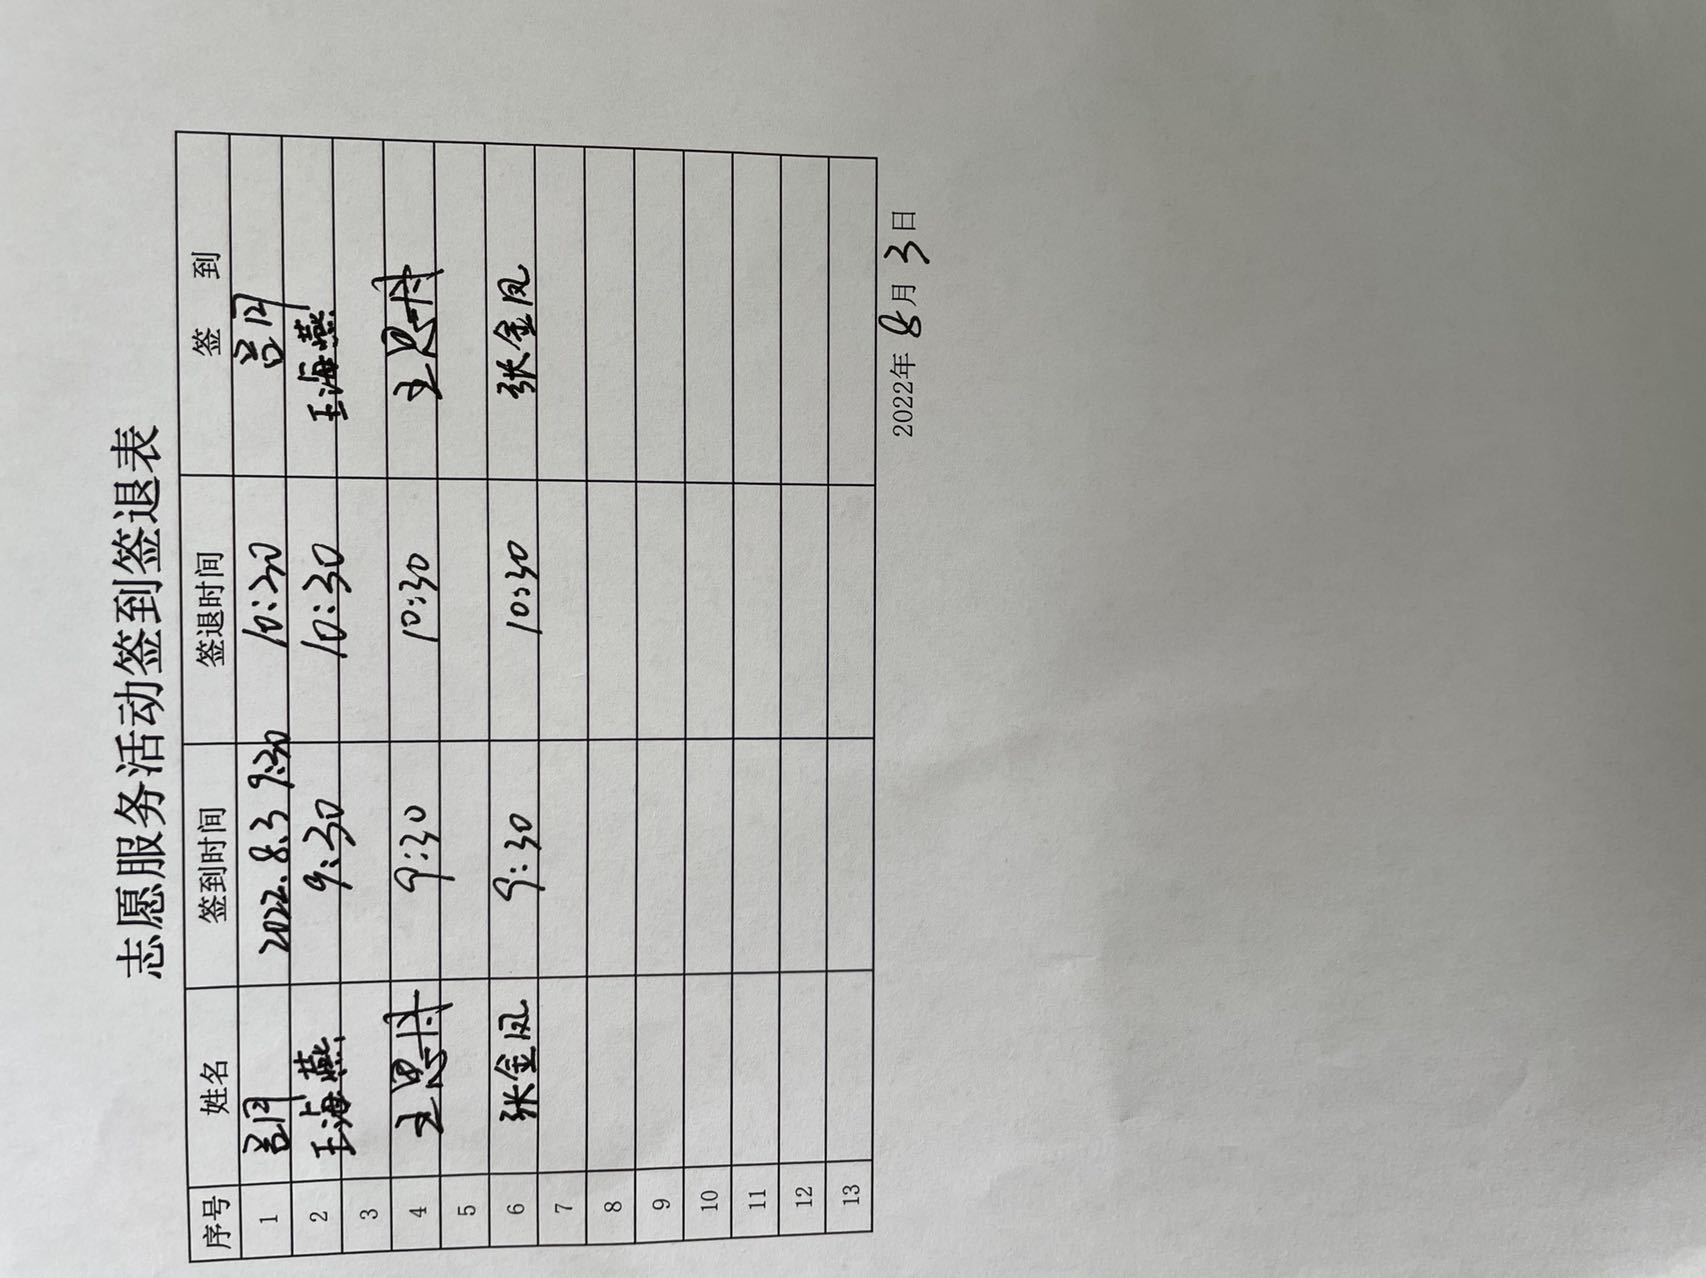 志愿服务活动签到签退表
序号 姓名 签到时间 签退时间 签 到
1 2022.8.3 9:30 10:30
2 王海燕 9:30 10:30 王海燕
3
4 王思丹 9:30 10:30 王思丹
5
6 张金凤 9:30 10:30 张金凤
7
8
9
10
11
12
13
2022年8月3日